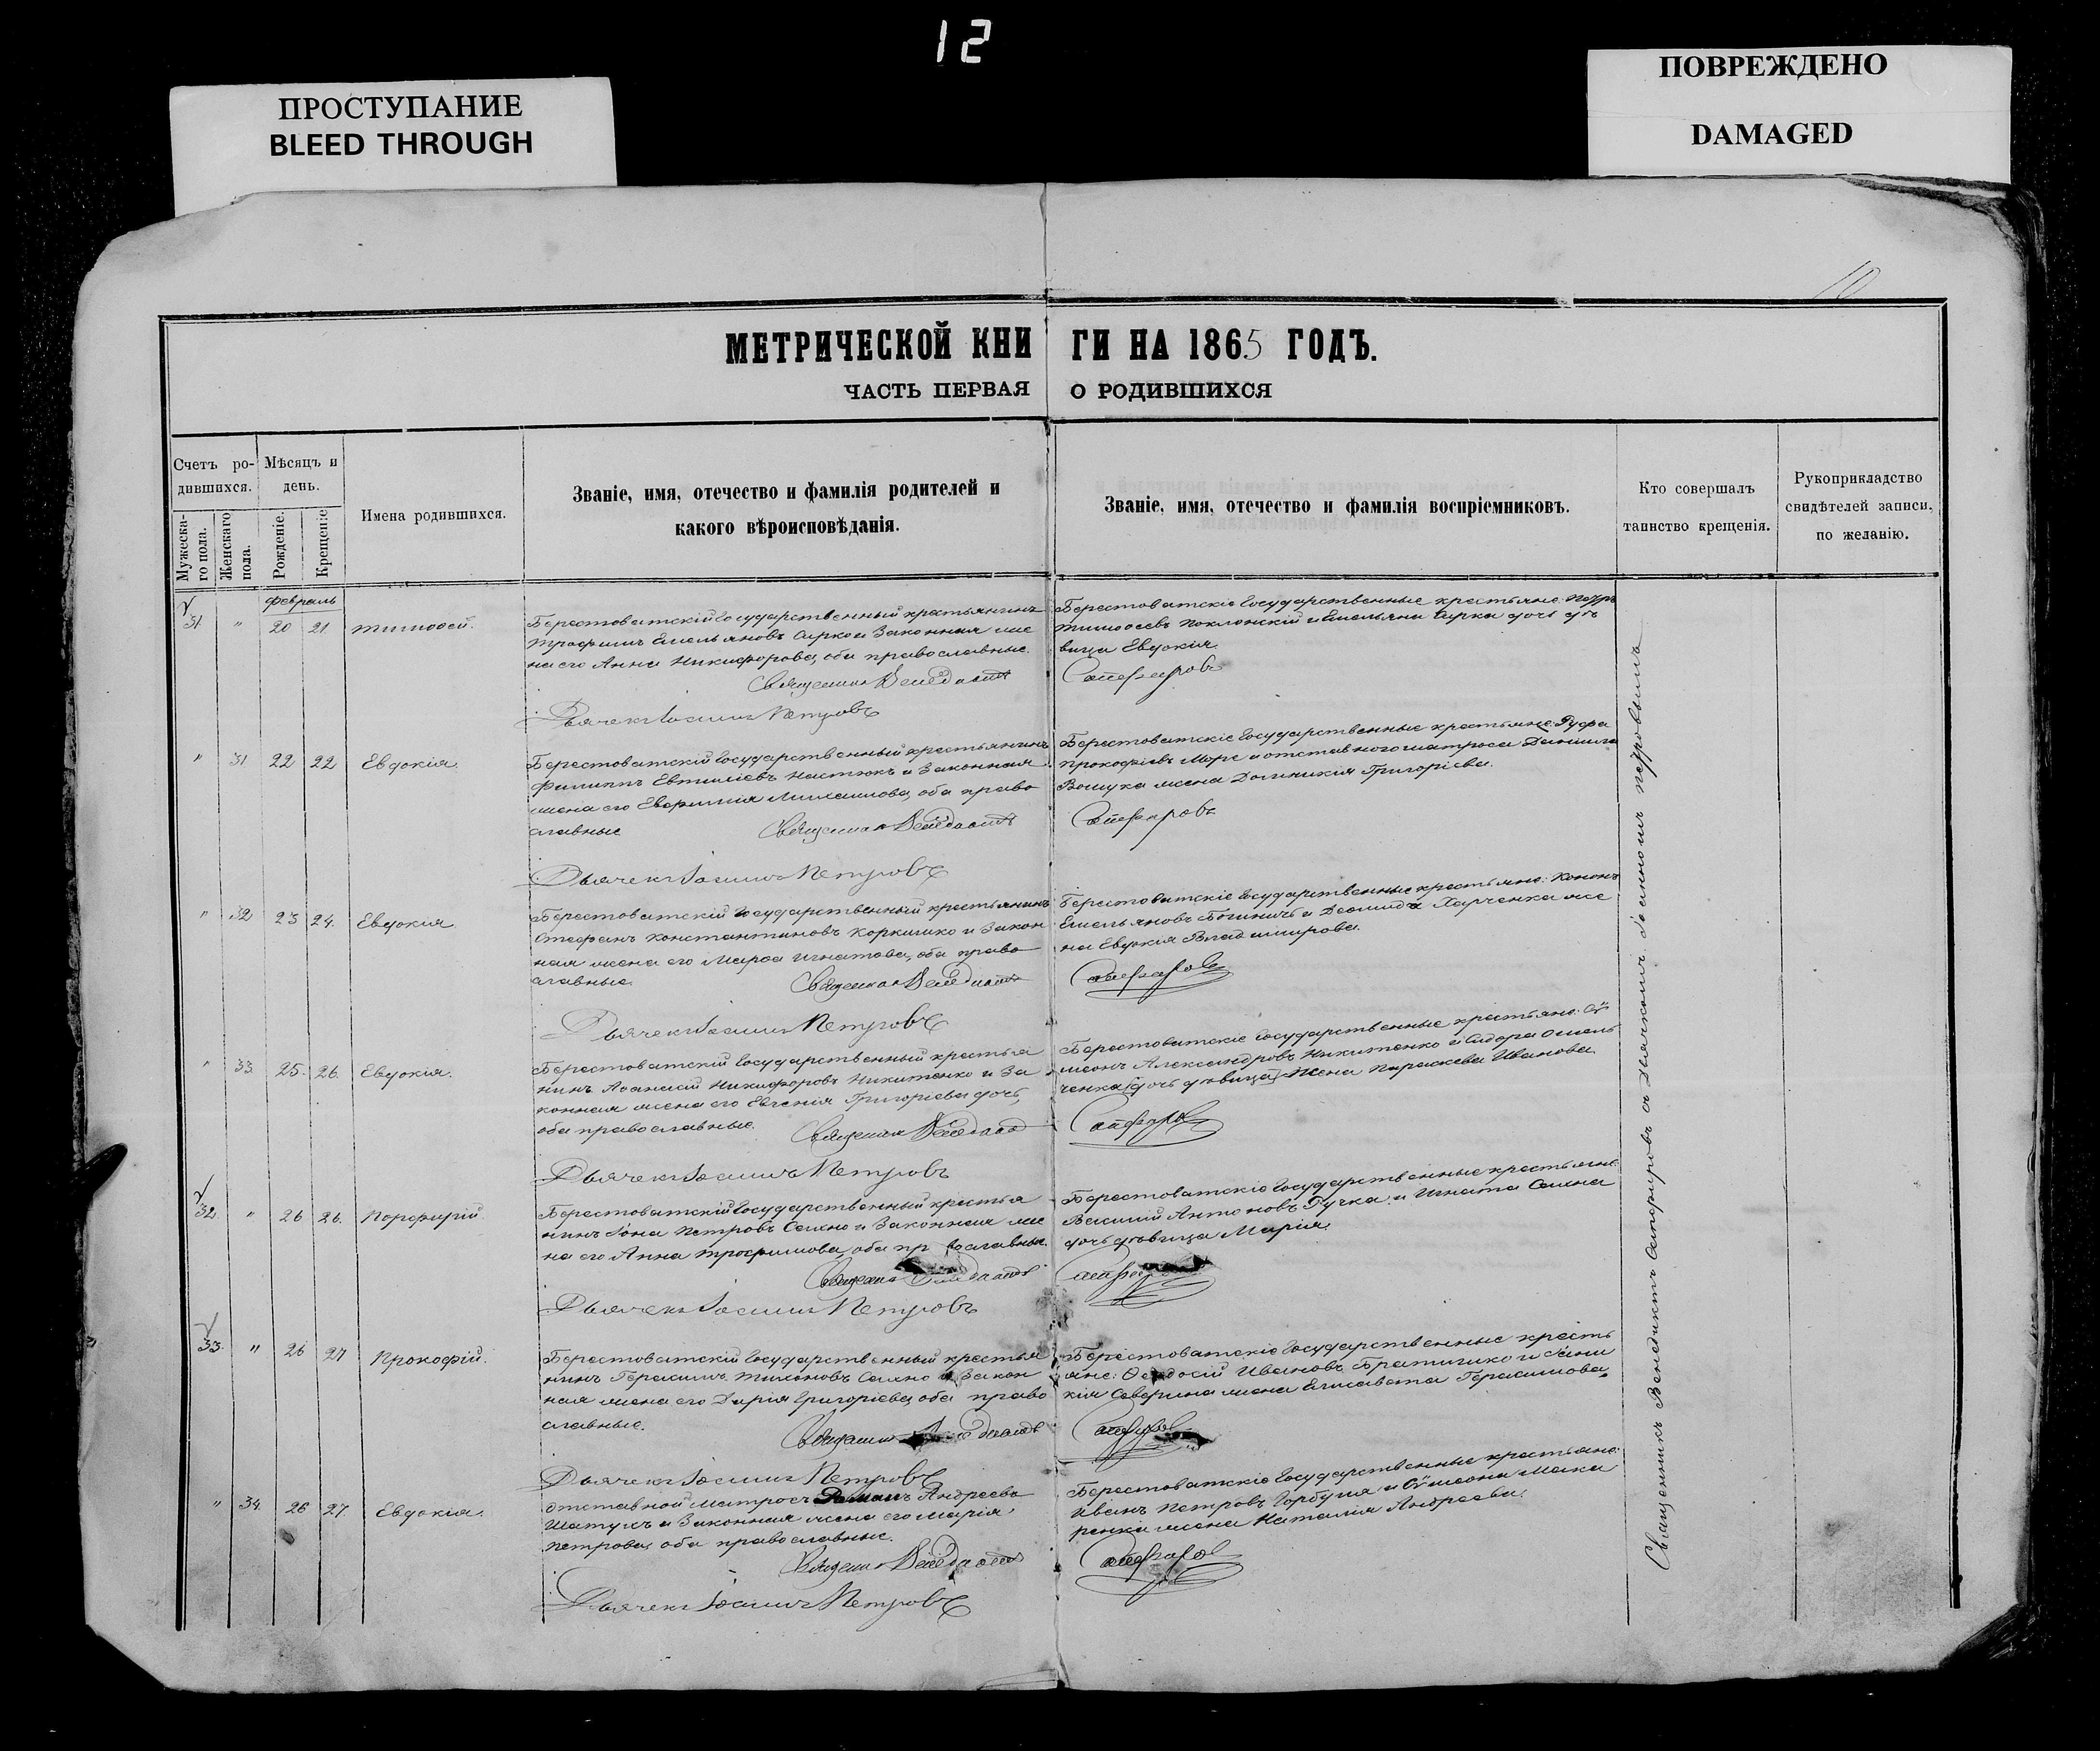 12
ПРОСТУПАНИЕ
BLEED THROUGH
ПОВРЕЖДЕНО
DAMAGED
10
МЕТРИЧЕСКОЙ КНИГИ НА 1865 ГОДЪ.
ЧАСТЬ ПЕРВАЯ О РОДИВШИХСЯ
Счетъ ро-
дившихся.
Мужеска-
го пола.
Женскаго
пола.
Мѣсяцъ и
день.
Рожденіе.
Крещеніе
Имена родившихся.
Званіе, имя, отечество и фамилія родителей и
какого вѣроисповѣданія.
Званіе, имя, отечество и фамилія воспріемниковъ.
Кто совершалъ
таинство крещенія.
Рукоприкладство
свидѣтелей записи,
по желанію.
февраль
31 " 20 21 Тимоѳей.
Берестоватскій Государственный крестьянинъ
Трофимъ Емельяновъ Сирко и Законная же
на его Анна Никифорова, оба православные.
Священник Венедиктъ
Дьячекъ Іоаннъ Петровъ
Берестоватскіе Государственные крестьяне: Петръ
Тимоѳеевъ Поклонскій и Емельяна Сирка дочь дѣ
вица Евдокія.
Сапфировъ
" 31 22 22 Евдокія.
Берестоватскій Государственный крестьянинъ
Филиппъ Евтиліевъ Настюкъ и Законная
жена его Евфимія Михаилова, оба право
славные
Священник Венедиктъ
Дьячекъ Іоаннъ Петровъ
Берестоватскіе Государственные крестьяне: Руфа
Прокофіевъ Моргъ и отставного матроса Даніила
жена Домникія Григоріева.
Сапфировъ
" 32 23 24. Евдокія
Берестоватскій Государственный крестьянинъ
Стефанъ Константиновъ Коржишко и Закон
ная жена его Марѳа Игнатова, оба право
славные.
Священник Венедиктъ
Дьячекъ Іоаннъ Петровъ
Берестоватскіе Государственные крестьяне: Кононъ
Емельяновъ и Деомида Харченка же
на Евдокія Владимирова.
Сапфировъ
" 33 25. 26. Евдокія.
Берестоватскій Государственный крестья
нинъ Аѳанасій Никифоровъ Никитенко и За
конная жена его Евгенія Григоріева дочь,
оба православные.
Священник Венедикт
Дьячекъ Іоаннъ Петровъ
Берестоватскіе Государственные крестьяне: Сѵ
меонъ Александровъ Никитенко и Сидора Омель
ченка [дочь дѣвица] жена Параскева Иванова.
Сапфиров
32. " 26 26. Порфирій.
Берестоватскій Государственный крестья
нинъ Іона Петровъ Сахно и Законная же
на его Анна Трофимова, оба пр вославные.
Священ Венедиктъ
Дьячекъ Іоаннъ Петровъ
Берестоватскіе Государственные крестьяне:
Василій Антоновъ Ручка и Игната Сахна
дочь дѣвица Марія.
33. " 26 27 Прокофій.
Берестоватскій Государственный крестья
нинъ Герасимъ Тихоновъ Сахно и Закон
ная жена его Дарія Григоріева, оба право
славные.
Дьячекъ Іоаннъ Петровъ
Берестоватскіе Государственные кресть
яне: Ѳеодосій Ивановъ Братишко и
кія Северина жена Елисавета Герасимова.
Сапфиров
" 34. 26 27. Евдокія.
отставной матросъ Романъ Андреевъ
Шатухъ и Законная жена его Марія
Петрова, оба православные.
Священ Венедиктъ
Дьячекъ Іоаннъ Петровъ
Берестоватскіе Государственные крестьяне:
Иванъ Петровъ Горбуля и Сѵмеона Мака
ренка жена Наталія Андреева.
Сапфиров
Священникъ Венедиктъ Сапфировъ съ дьячкомъ Іоанномъ Петровымъ